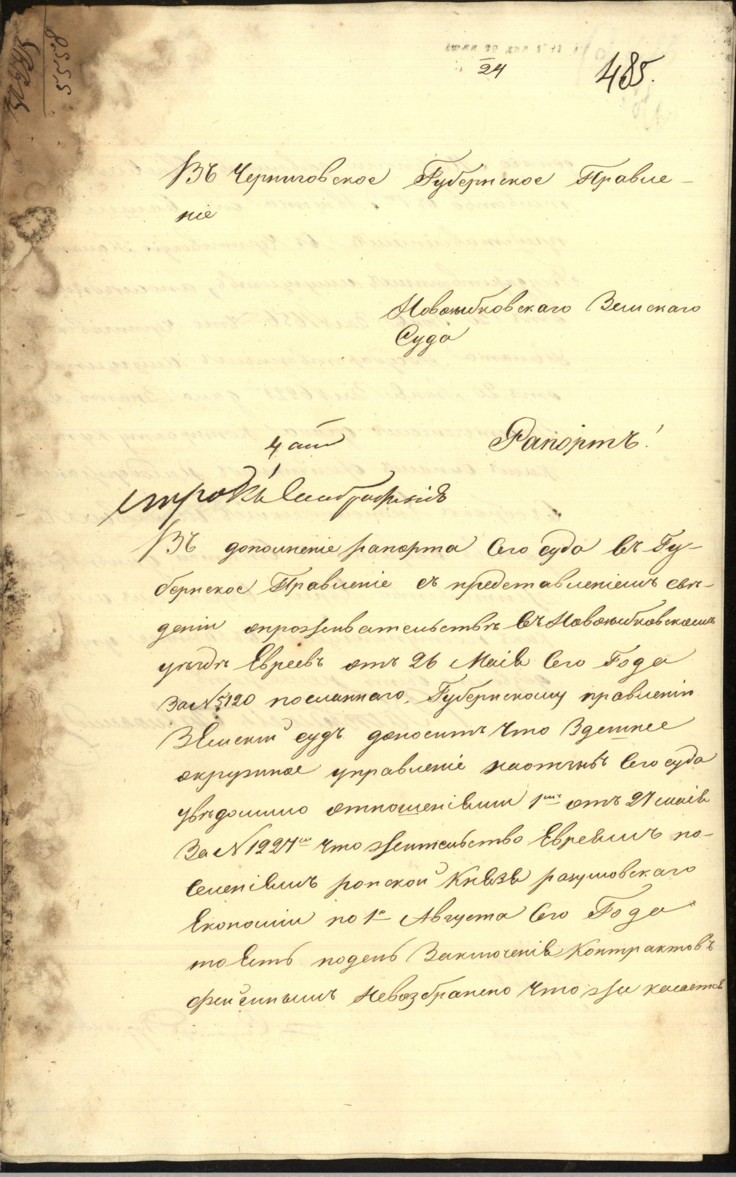 24
485.
5558
Въ Черниговское Губернское Правле-
ніе
Новозыбковскаго Земскаго
Суда
Рапортъ!
Въ дополненіе рапорта сего суда въ Гу-
бернское Правленіе съ представленіемъ свѣ-
деніи опрожывательствѣ въ Новозыбковскомъ
уѣздѣ Евреевъ отъ 26 Маія сего Года
за № 5120 посланнаго, Губернскому правленіи
Земскій судъ доноситъ что Здешнее
окружное управленіе наотзывъ сего суда
увѣдомило отношеніями 1мъ отъ 27 маія
За № 1227мъ что жительство Евреямъ по-
селеніямъ ропской Князя разумовскаго
Економіи по 1е Августа сего Года
тоесть подень Заключенія Контрактовъ
невозбранено что жи касается